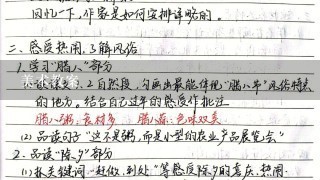 回忆一下，作家是如何安排详略的。
二、感受热闹，了解风俗
1. 学习“腊八”部分
2 自然段，勾画出最能体现“腊八节”风俗特点
的地方。结合自己过年的感受作批注
腊八粥，食材多 腊八蒜：色味双美
(2) 品读句子“这不是粥，而是小型的农业产品展览会”
2. 品读“除夕”部分
(1) 抓关键词“赶做，到处”等感受除夕的喜庆、热闹